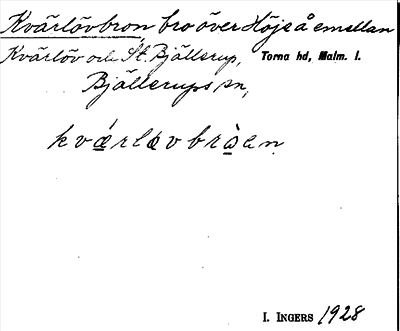 Kvärlövbron bro över Höje å emellan
Kvärlöv och St. Bjällerup, Torna hd, Malm. l.
Bjällerups sn,
kvǽrløvbròen
I. INGERS 1928